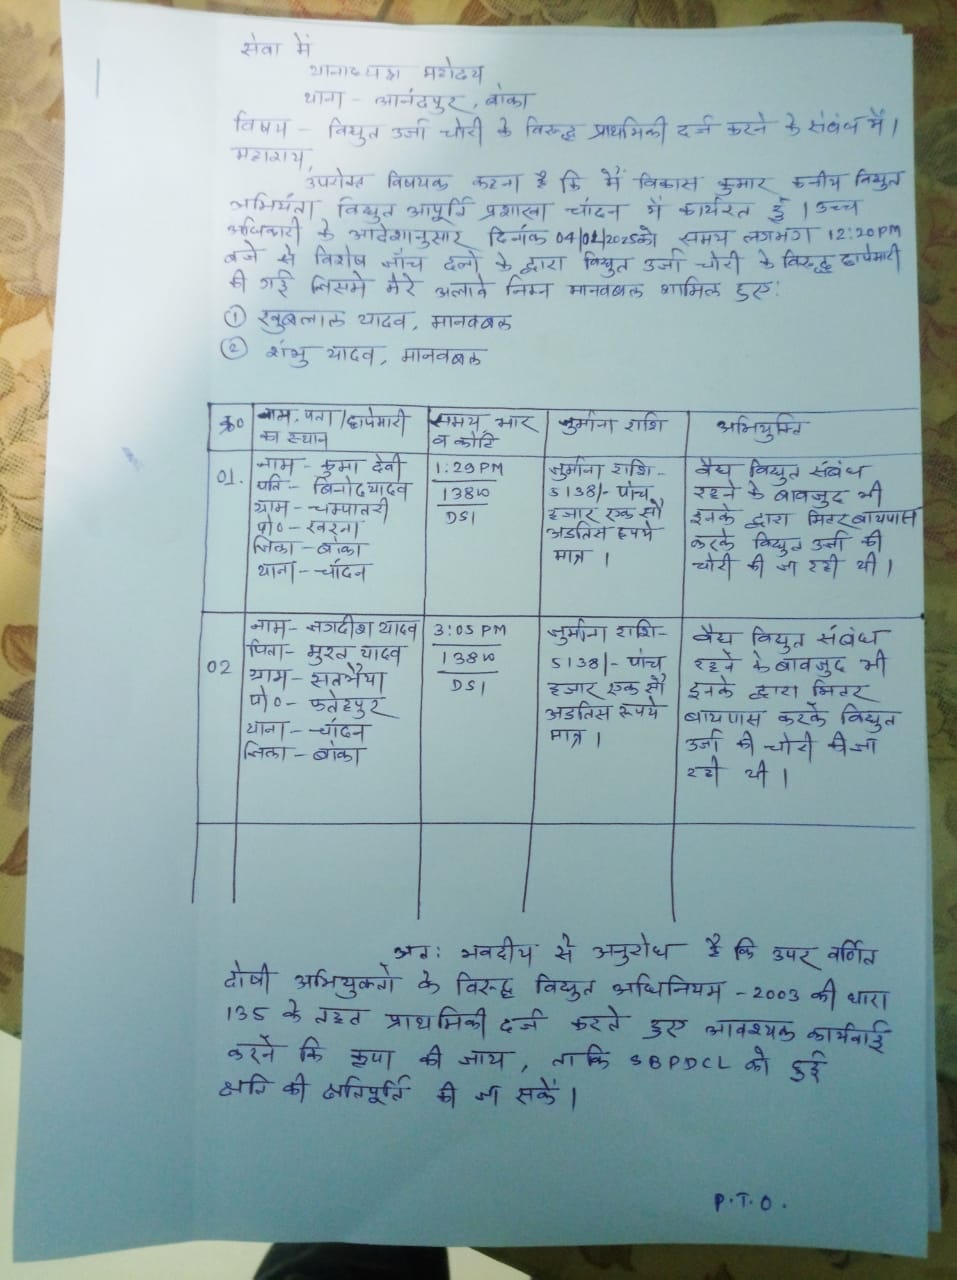 सेवा में
थानाध्यक्ष महोदय
थाना - आनंदपुर, बांका
विषय - विद्युत उर्जा चोरी के विरूद्ध प्राथमिकी दर्ज करने के संबंध में।
महाशय,
उपरोक्त विषयक कहना है कि मैं विकास कुमार कनीय विद्युत
अभियंता विद्युत आपूर्ति प्रशाखा चांदन में कार्यरत हुँ। उच्च
अधिकारी के आदेशानुसार दिनांक 04/02/2025को समय लगभग 12:20PM
बजे से विशेष जाँच दलों के द्वारा विद्युत उर्जा चोरी के विरूद्ध छापेमारी
की गई जिसमे मेरे अलावे निम्न मानवबल शामिल हुए:
① खुबलाल यादव, मानवबल
② शंभु यादव, मानवबल
क्र० नाम, पता/छापेमारी का स्थान समय भार व कोटि जुर्माना राशि अभियुक्ति
01. नाम - कुमा देवी 1:29 PM जुर्माना राशि- वैध विद्युत संबंध
पति - बिनोद यादव 138W 5138/- पांच रहने के बावजूद भी
ग्राम - चम्पातरी DS1 हजार एक सौ इनके द्वारा मिटर बायपास
पो० - अडतिस रूपये करके विद्युत उर्जा की
जिला - बांका मात्र। चोरी की जा रही थी।
थाना - चांदन
02 नाम - जगदीश यादव 3:05 PM जुर्माना राशि- वैध विद्युत संबंध
पिता - मुरत यादव 138W 5138/- पांच रहने के बावजूद भी
ग्राम - सतभैया DS1 हजार एक सौ इनके द्वारा मिटर
पो० - फतेहपुर अडतिस रूपये बायपास करके विद्युत
थाना - चांदन मात्र। उर्जा की चोरी की जा
जिला - बांका रही थी।
अतः भवदीय से अनुरोध है कि उपर वर्णित
दोषी अभियुक्तो के विरूद्ध विद्युत अधिनियम - 2003 की धारा
135 के तहत प्राथमिकी दर्ज करते हुए आवश्यक कार्यवाई
करने कि कृपा की जाय, ताकि SBPDCL को हुई
क्षति की क्षतिपूर्ति की जा सकें।
P.T.O.